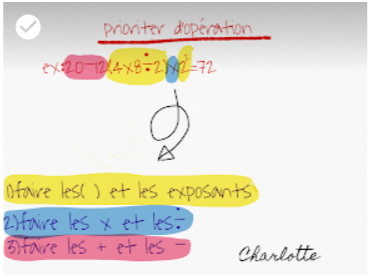 prioriter d'opération
ex:20-12(4x8÷2)x2²=72
1)faire les( ) et les exposants
2)faire les x et les÷
3)faire les + et les -
Charlotte